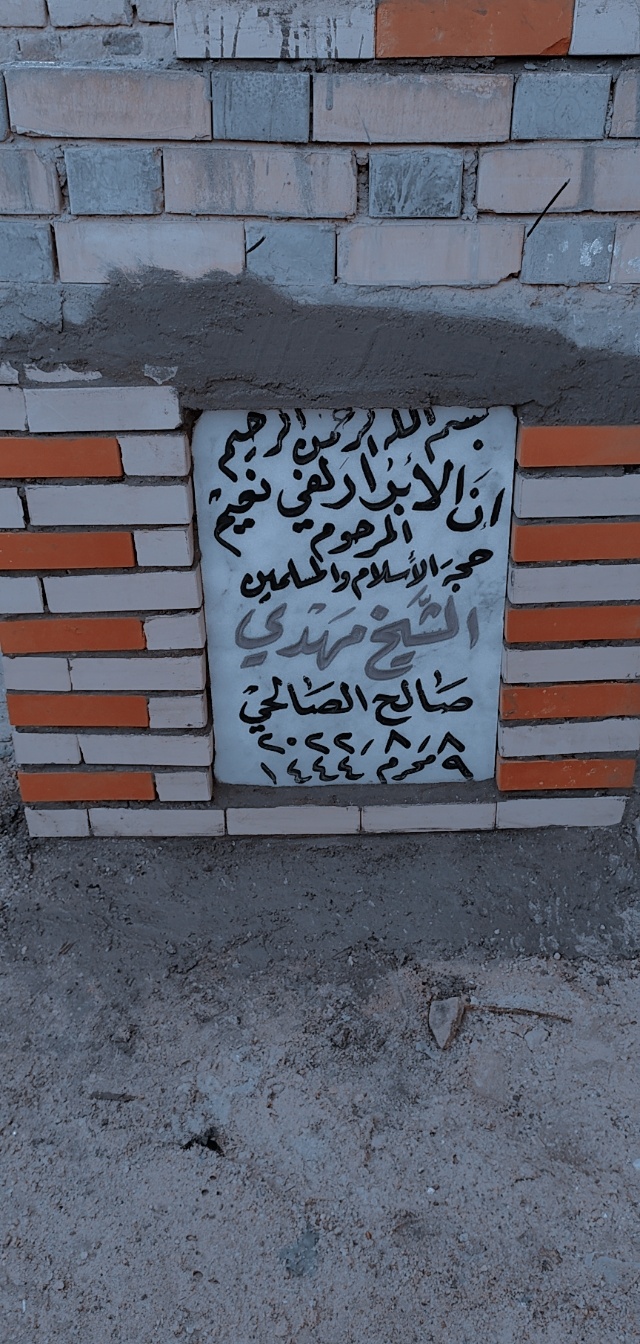 بسم الله الرحمن الرحيم
انَ الأبْرارَ لفي نعيم
المرحوم
حجة الأسلام والمسلمين
الشَّيخ مَهْدي
صَالح الصَالحيْ
٢٠٢٢/٨/٨
٩ محرم ١٤٤٤